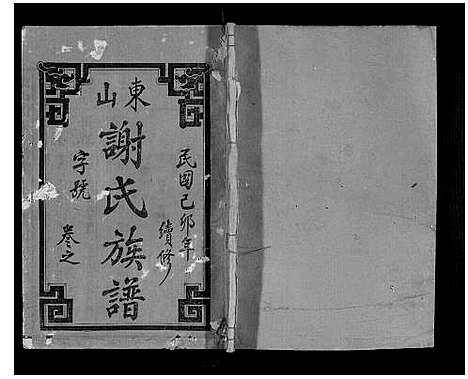 東山
民國己卯年
續修
謝氏族譜
字號
卷之